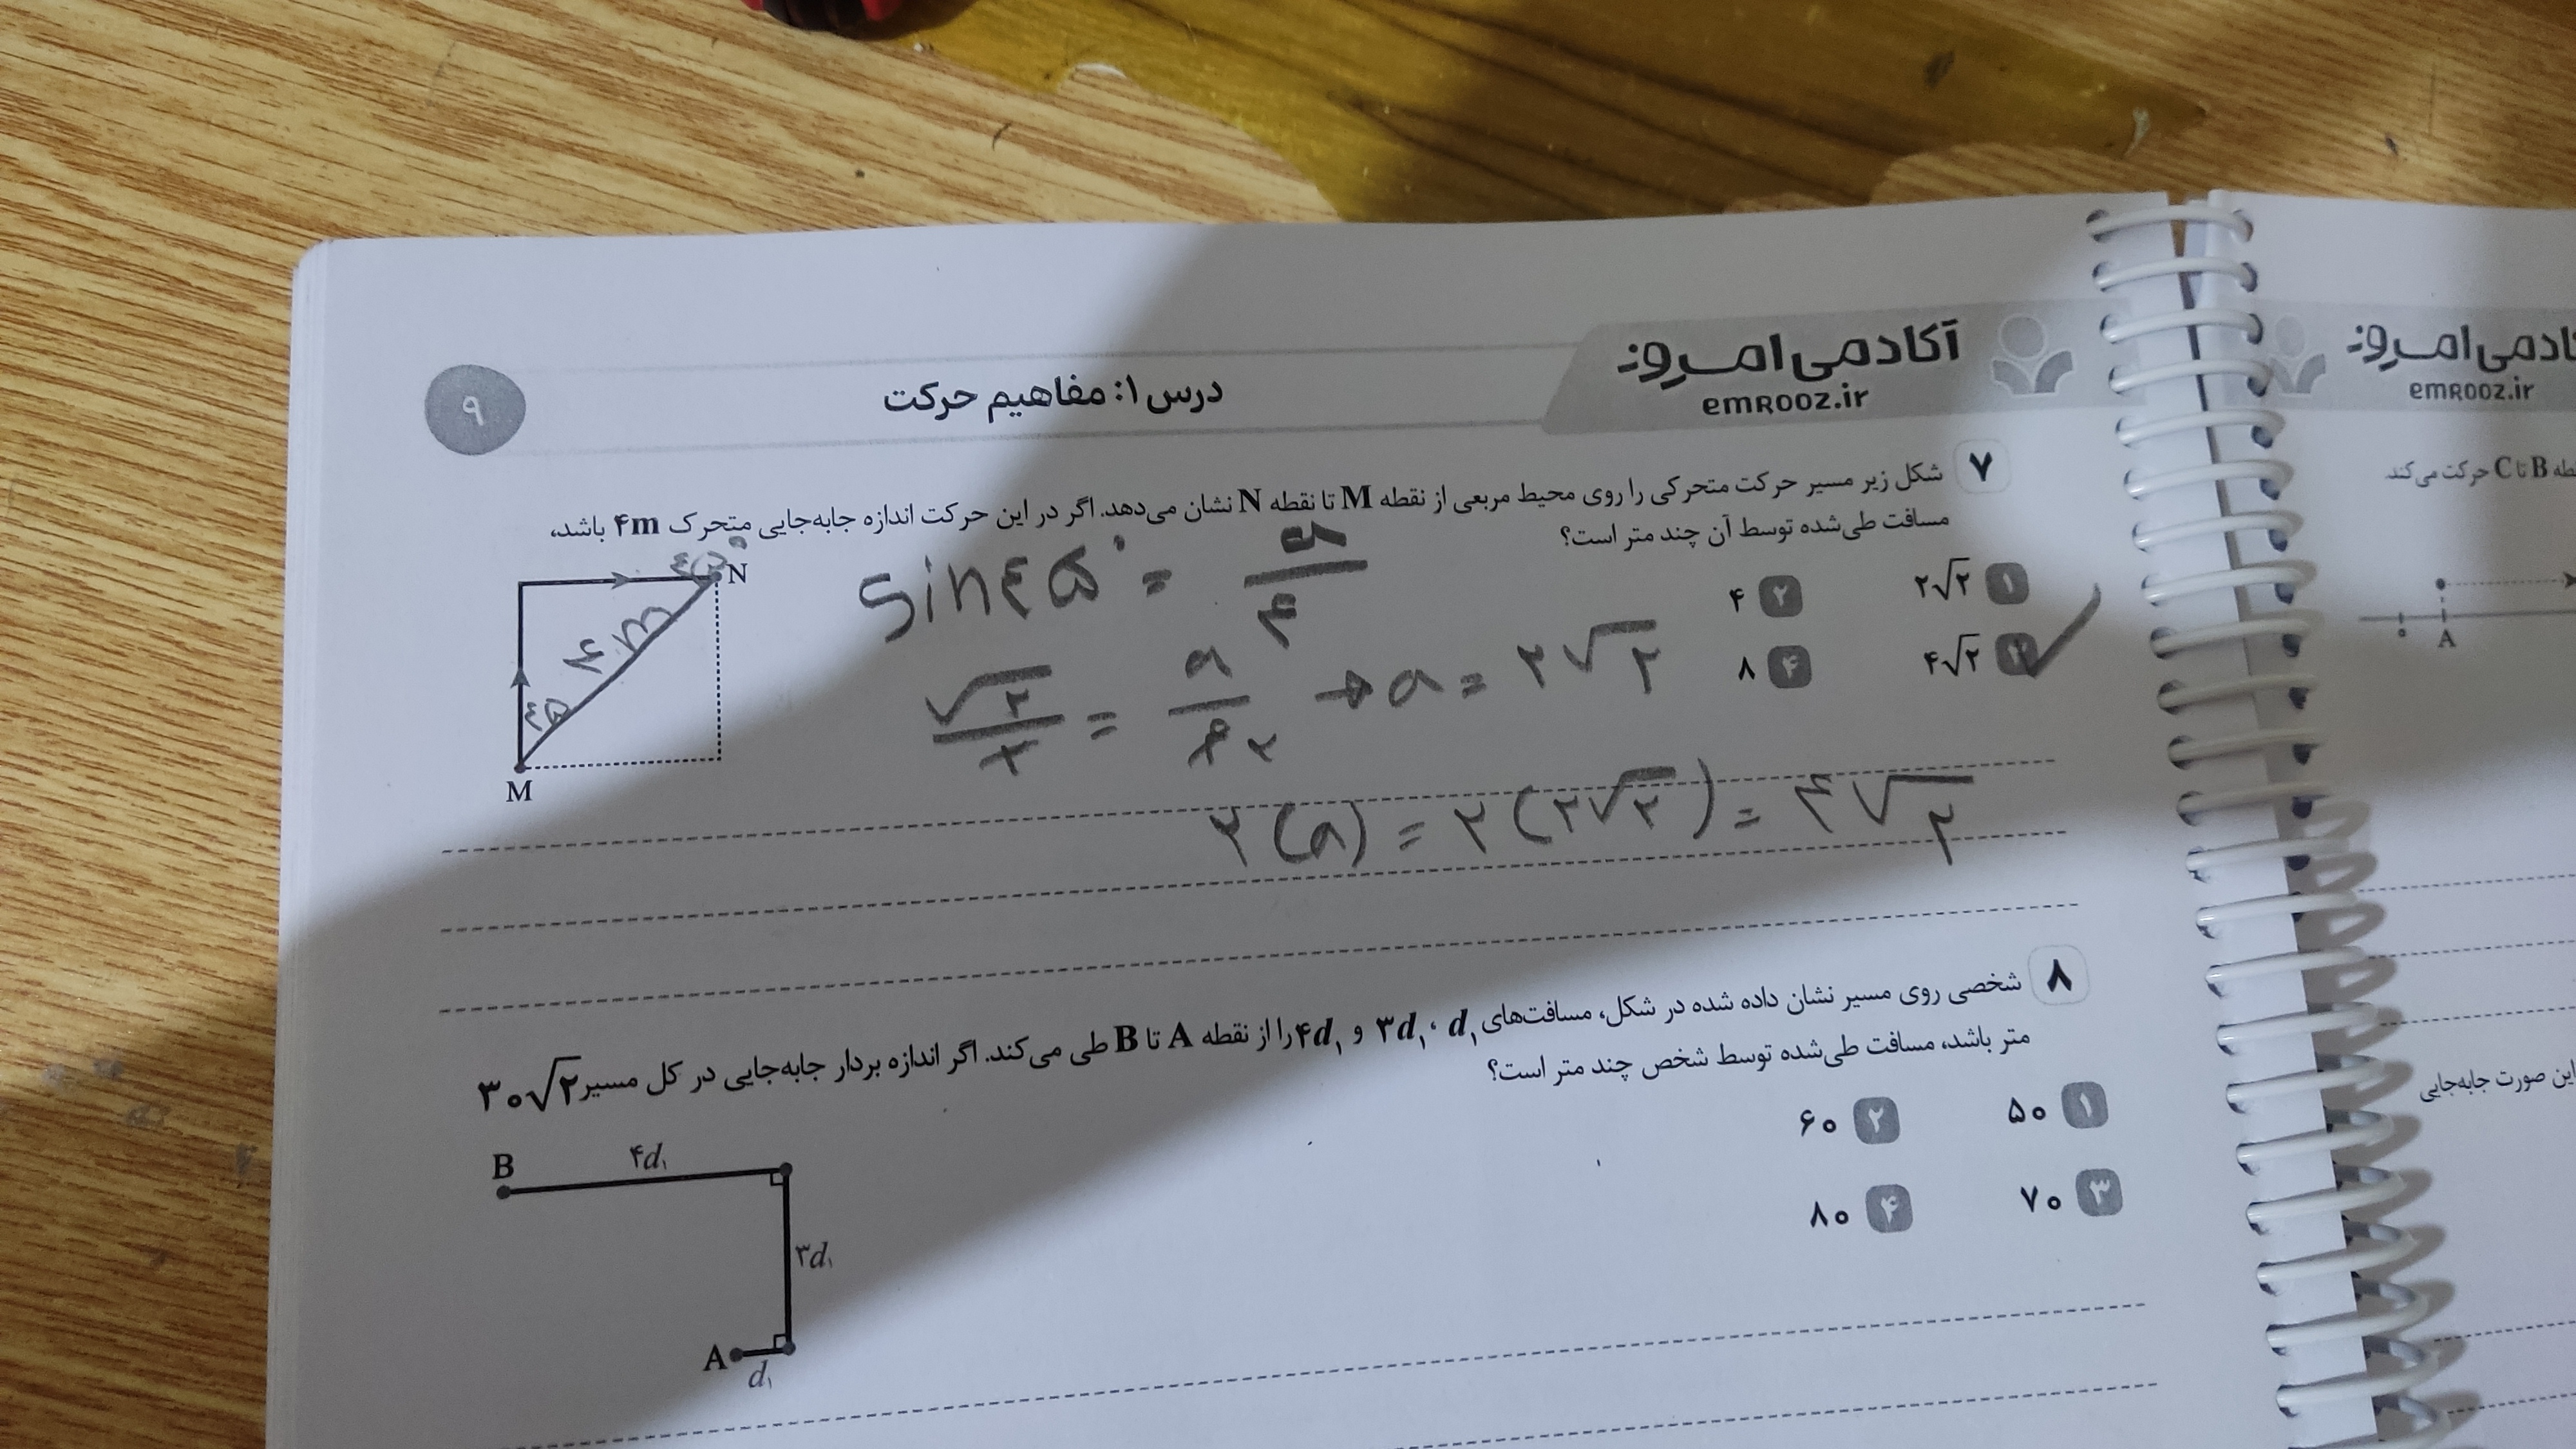 آکادمی امروز
emrooz.ir
درس ۱: مفاهیم حرکت
۹
۷ شکل زیر مسیر حرکت متحرکی را روی محیط مربعی از نقطه M تا نقطه N نشان می‌دهد. اگر در این حرکت اندازه جابه‌جایی متحرک ۴m باشد،
مسافت طی‌شده توسط آن چند متر است؟
۱ ۲√۲
۲ ۴
۳ ۴√۲
۴ ۸
N
۴۵°
۴m
۴۵
M
sin ۴۵° = a/۴
√۲/۲ = a/۴ ۲ → a = ۲√۲
۲(a) = ۲(۲√۲) = ۴√۲
۸ شخصی روی مسیر نشان داده شده در شکل، مسافت‌های d₁، ۳d₁ و ۴d₁ را از نقطه A تا B طی می‌کند. اگر اندازه بردار جابه‌جایی در کل مسیر ۳۰√۲
متر باشد، مسافت طی‌شده توسط شخص چند متر است؟
۱ ۵۰
۲ ۶۰
۳ ۷۰
۴ ۸۰
B
۴d₁
۳d₁
A
d₁
emrooz.ir
نقطه B تا C حرکت می‌کند
A
این صورت جابه‌جایی